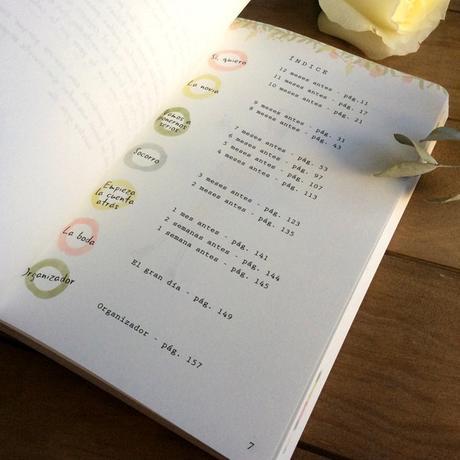 ÍNDICE
Sí, quiero
12 meses antes - pág.11
11 meses antes - pág. 17
10 meses antes - pág. 21
La novia
9 meses antes - pág. 31
8 meses antes - pág. 43
Vamos a
ponernos
serios
7 meses antes - pág. 53
6 meses antes - pág. 97
5 meses antes - pág. 107
4 meses antes - pág. 113
Socorro
3 meses antes - pág. 123
2 meses antes - pág. 135
Empieza
la cuenta
atrás
1 mes antes - pág. 141
2 semanas antes - pág. 144
1 semana antes - pág. 145
La boda
El gran día - pág. 149
Organizador
Organizador - pág. 157
7